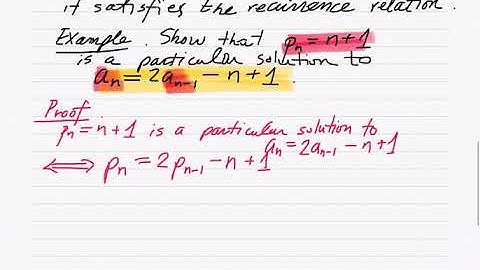 it satisfies the recurrence relation.
Example. Show that pₙ = n+1
is a particular solution to
aₙ = 2aₙ₋₁ − n + 1.
Proof
pₙ = n+1 is a particular solution to
aₙ = 2aₙ₋₁ − n + 1
⟺ pₙ = 2pₙ₋₁ − n + 1